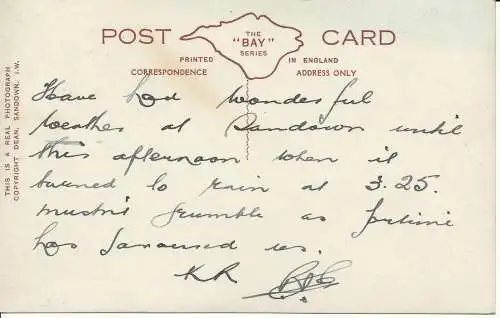 POST CARD
THE
"BAY"
SERIES
PRINTED IN ENGLAND
CORRESPONDENCE ADDRESS ONLY
THIS IS A REAL PHOTOGRAPH
COPYRIGHT DEAN, SANDOWN, I.W.
Have had wonderful
weather at Sandown until
this afternoon when it
turned to rain at 3.25.
mustn't grumble as fortune
has favoured us.
KR